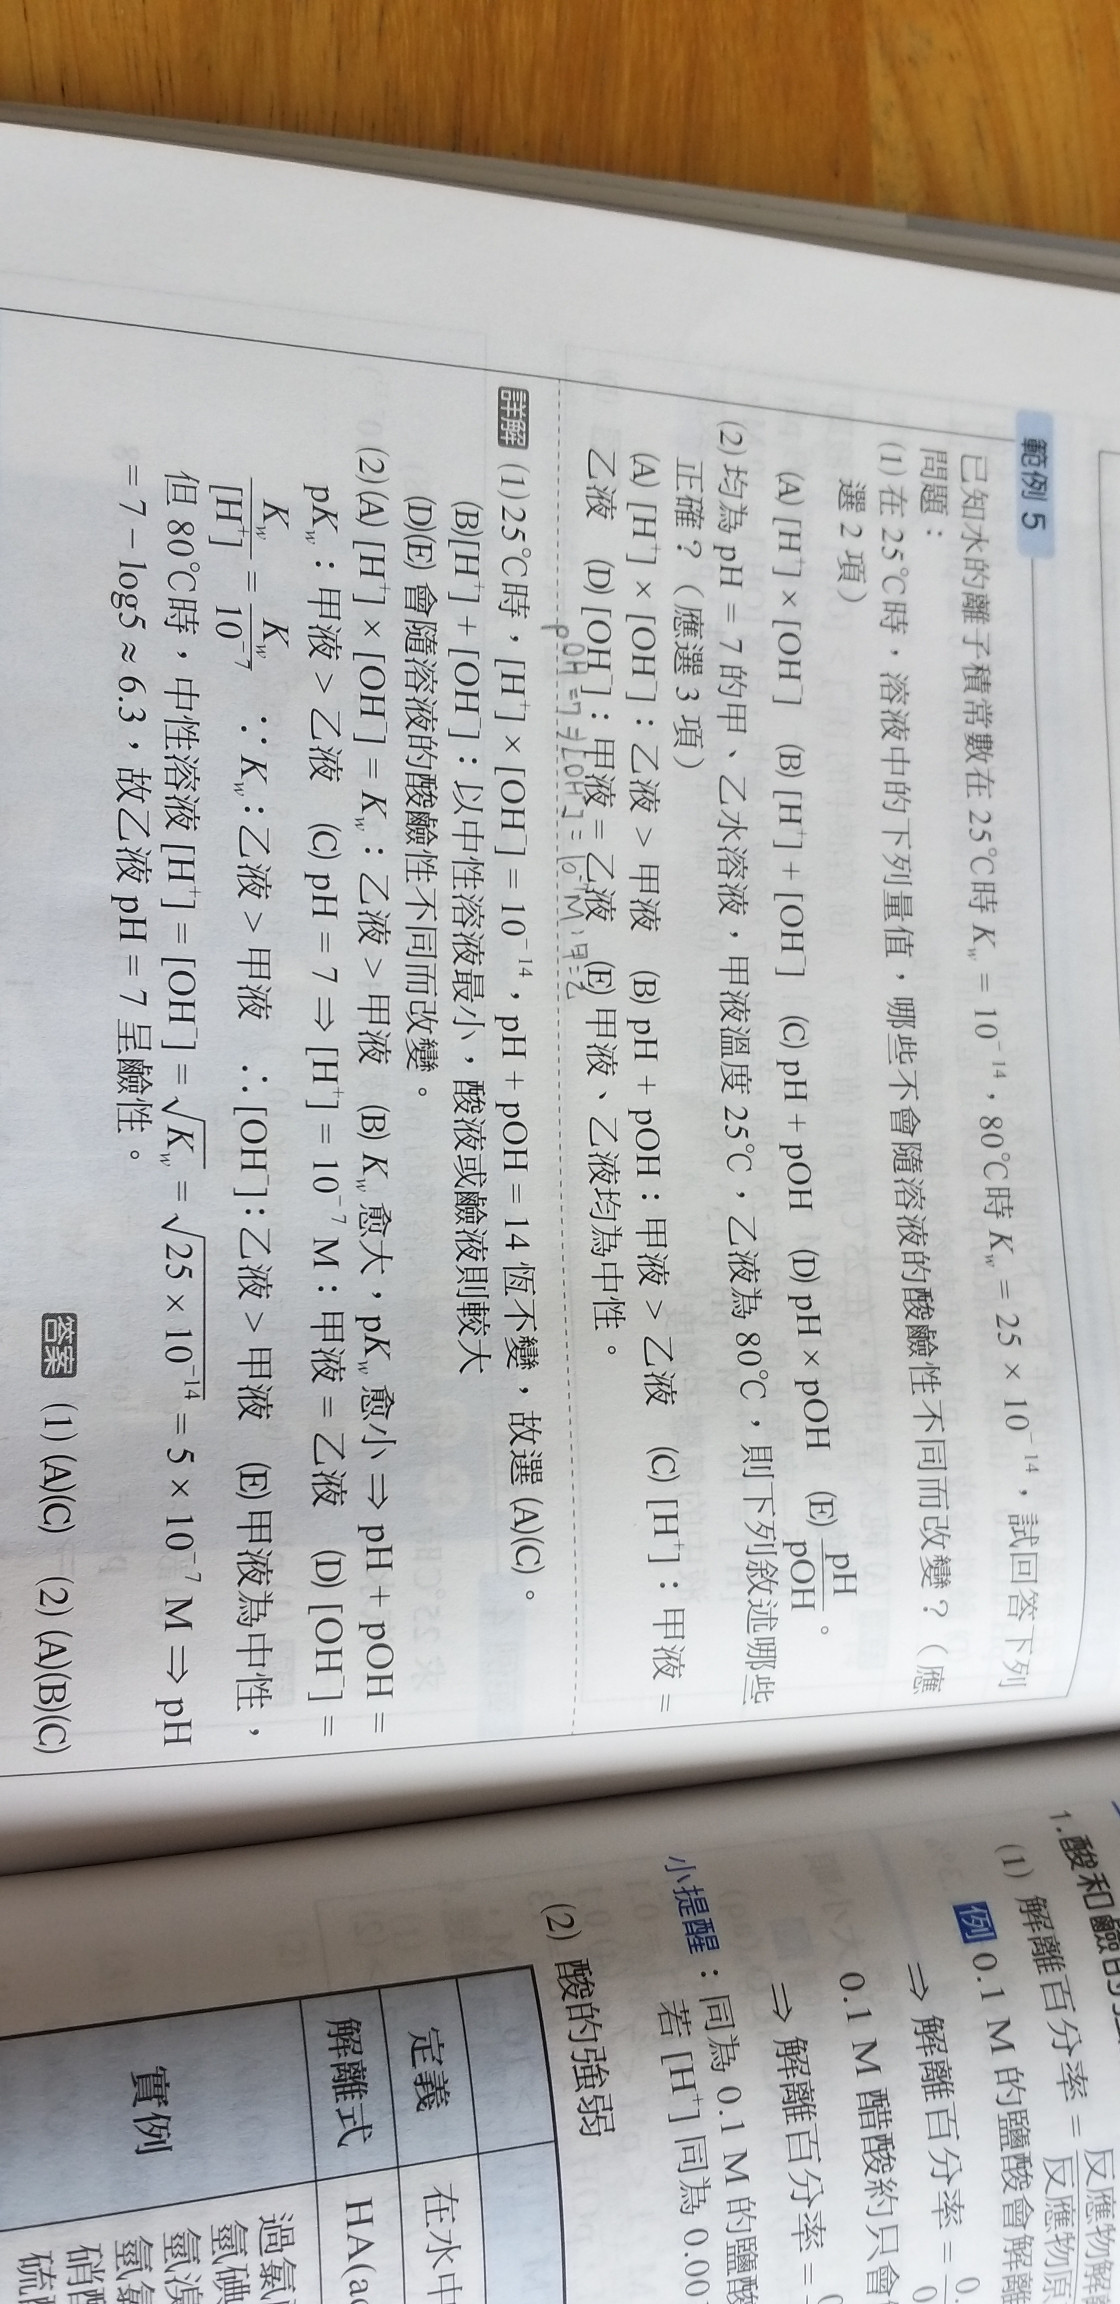 範例 5
已知水的離子積常數在 25℃時 Kw = 10⁻¹⁴,80℃時 Kw = 25 × 10⁻¹⁴,試回答下列
問題:
(1) 在 25℃時,溶液中的下列量值,哪些不會隨溶液的酸鹼性不同而改變?(應
選 2 項)
(A) [H⁺] × [OH⁻] (B) [H⁺] + [OH⁻] (C) pH + pOH (D) pH × pOH (E) pH/pOH。
(2) 均為 pH = 7 的甲、乙水溶液,甲液溫度 25℃,乙液為 80℃,則下列敘述哪些
正確?(應選 3 項)
(A) [H⁺] × [OH⁻]:乙液 > 甲液 (B) pH + pOH:甲液 > 乙液 (C) [H⁺]:甲液 =
乙液 (D) [OH⁻]:甲液 = 乙液 (E) 甲液、乙液均為中性。
pOH = 7 ⇒ [OH⁻] = 10⁻⁷M
詳解 (1)25℃時,[H⁺] × [OH⁻] = 10⁻¹⁴,pH + pOH = 14 恆不變,故選 (A)(C)。
(B)[H⁺] + [OH⁻]:以中性溶液最小,酸液或鹼液則較大
(D)(E) 會隨溶液的酸鹼性不同而改變。
(2)(A) [H⁺] × [OH⁻] = Kw:乙液 > 甲液 (B) Kw 愈大,pKw 愈小 ⇒ pH + pOH =
pKw:甲液 > 乙液 (C) pH = 7 ⇒ [H⁺] = 10⁻⁷ M:甲液 = 乙液 (D) [OH⁻] =
Kw/[H⁺] = Kw/10⁻⁷ ∵ Kw:乙液 > 甲液 ∴ [OH⁻]:乙液 > 甲液 (E) 甲液為中性,
但 80℃時,中性溶液 [H⁺] = [OH⁻] = √Kw = √25 × 10⁻¹⁴ = 5 × 10⁻⁷ M ⇒ pH
= 7 − log5 ≈ 6.3,故乙液 pH = 7 呈鹼性。
答案 (1) (A)(C) (2) (A)(B)(C)
1. 酸和鹼的
(1) 解離百分率 = 反應物解/反應物原
例 0.1 M 的鹽酸會解離
⇒ 解離百分率 = 0./0
0.1 M 醋酸約只會
⇒ 解離百分率 =
小提醒:同為 0.1 M 的鹽酸
若 [H⁺] 同為 0.00
(2) 酸的強弱
定義 在水中
解離式 HA(a
實例 過氯
氫碘
氫溴
氫氯
硝酸
硫酸